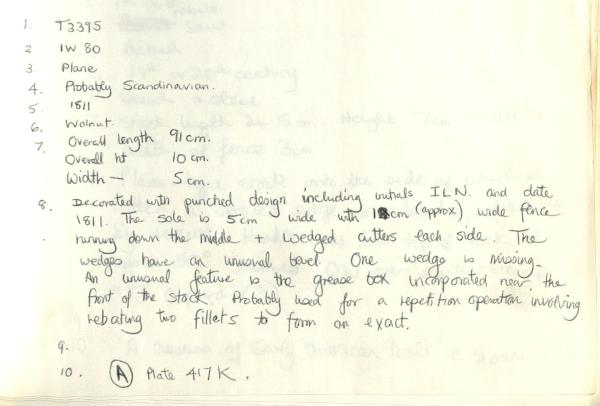 1. T3395
2 IW 80
3. Plane
4. Probably Scandinavian.
5. 1811
6. Walnut.
7. Overall length 91 cm.
Overall ht 10 cm.
Width — 5 cm.
8. Decorated with punched design including initials I L N. and date
1811. The sole is 5cm wide with 1cm (approx) wide fence
running down the middle + wedged cutters each side. The
wedges have an unusual bevel. One wedge is missing.
An unusual feature is the grease box incorporated near the
front of the stock. Probably used for a repetition operation involving
rebating two fillets to form an exact.
9.
10. A Plate 417K.